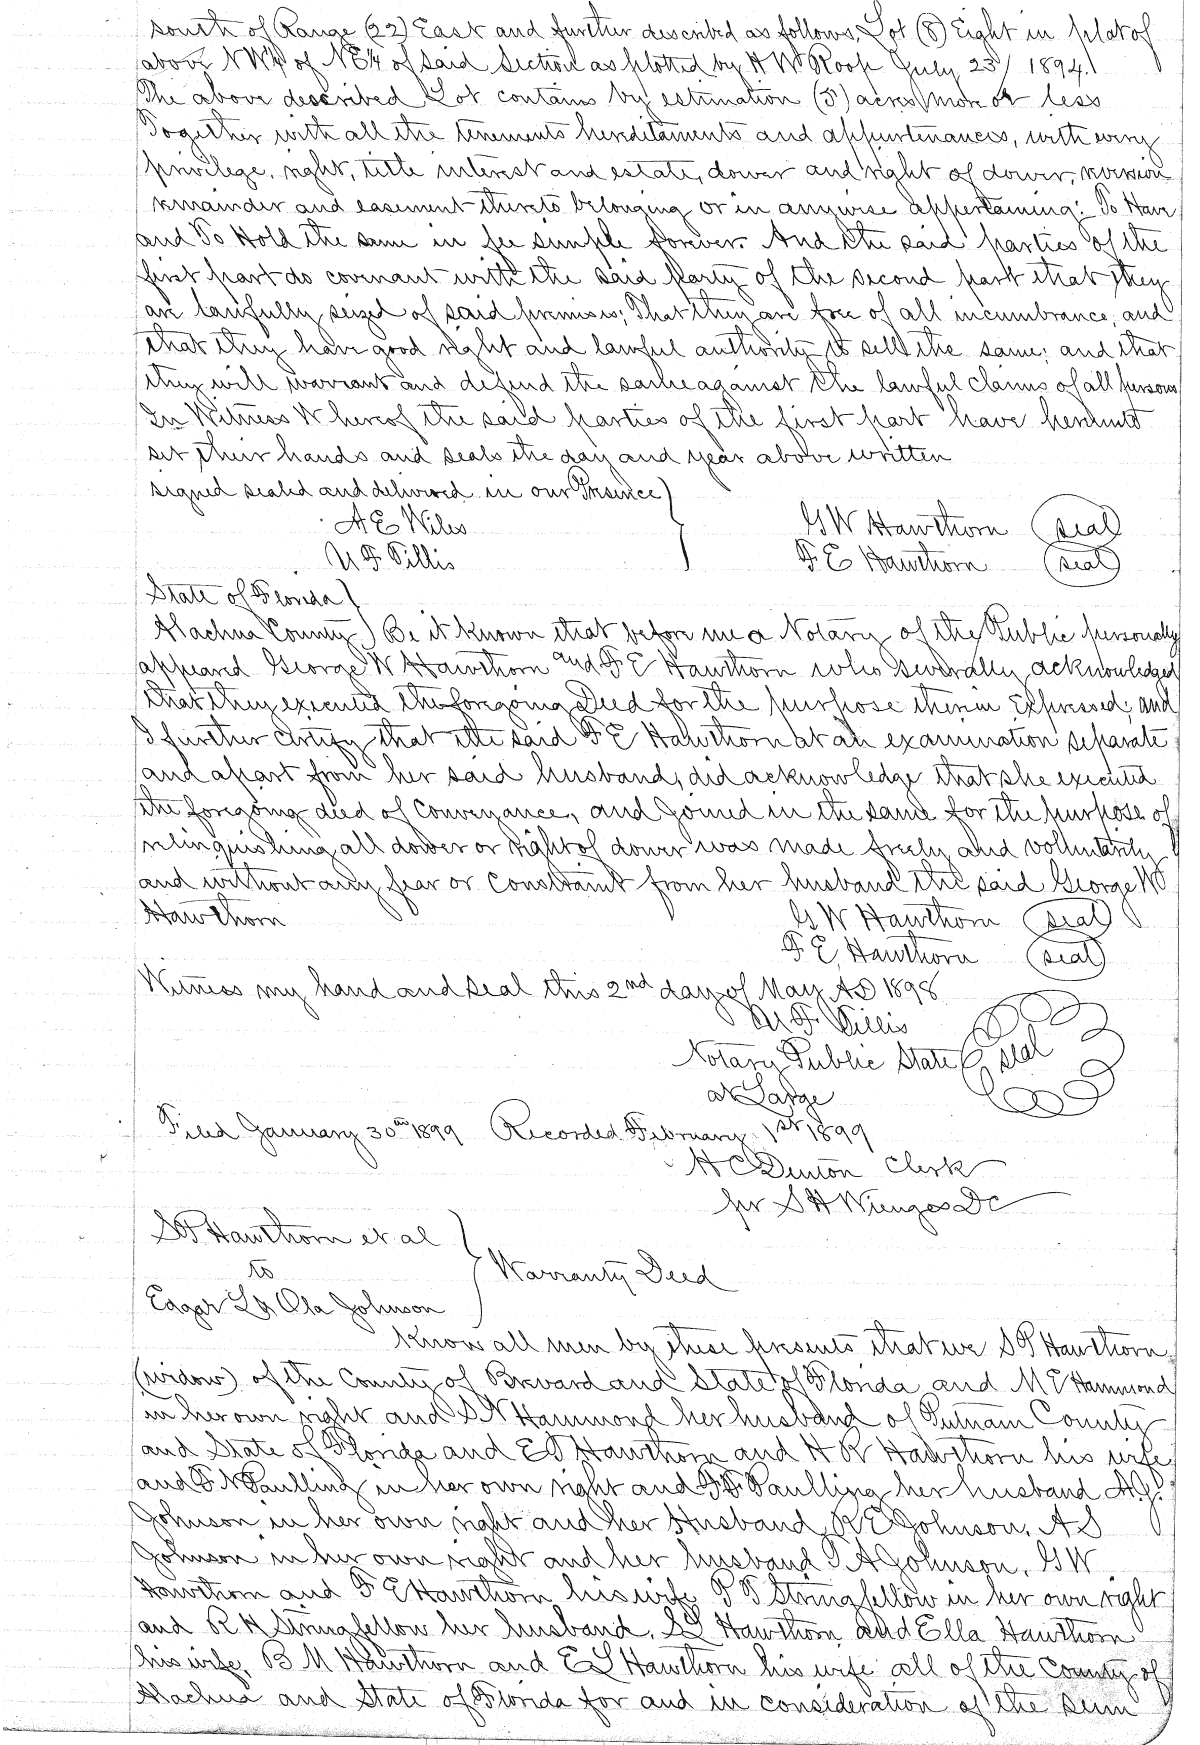 south of Range (22) East and further described as follows, Lot (8) Eight in plat of
above NW¼ of NE¼ of said Section as plotted by H W Roop July 23/ 1894.
The above described Lot contains by estimation (5) acres more or less
Together with all the tenements herditaments and appurtenances, with every
privilege, right, title interest and estate, dower and right of dower, reversion
remainder and easement thereto belonging or in anywise appertaining: To Have
and To Hold the same in fee simple forever. And the said parties of the
first part do covenant with the said party of the second part that they
are lawfully seized of said premises; That they are free of all incumbrance, and
that they have good right and lawful authority to sell the same; and that
they will warrant and defend the same against the lawful claims of all persons
In Witness Whereof the said parties of the first part have hereunto
set their hands and seals the day and year above written
signed sealed and delivered in our Presence
A E Wiles G W Hawthorn (seal)
U F Tillis F E Hawthorn (seal)
State of Florida
Alachua County Be it known that before me a Notary of the Public personally
appeared George W Hawthorn and F E Hawthorn who severally acknowledged
that they executed the foregoing Deed for the purpose therein Expressed; and
I further Certify that the said F E Hawthorn at an examination separate
and apart from her said husband, did acknowledge that she executed
the foregoing deed of Conveyance, and joined in the same for the purpose of
relinquishing all dower or right of dower was made freely and voluntarily
and without any fear or Constraint from her husband the said George W
Hawthorn G W Hawthorn (seal)
F E Hawthorn (seal)
Witness my hand and seal this 2nd day of May AD 1898
U F Tillis
Notary Public State seal
at Large
Filed January 30th 1899 Recorded February 1st 1899
H C Denton Clerk
per S H Wienges DC
S P Hawthorn et al
to Warranty Deed
Edgar L & Ola Johnson
Know all men by these presents that we S P Hawthorn
(widow) of the County of Brevard and State of Florida and M E Hammond
in her own right and S N Hammond her husband of Putnam County
and State of Florida and E T Hawthorn and H R Hawthorn his wife
and F N Paulling in her own right and F F Paulling her husband A.J.
Johnson in her own right and her Husband R E Johnson, A S
Johnson in her own right and her husband T A Johnson, G W
Hawthorn and F E Hawthorn his wife P T Stringfellow in her own right
and R H Stringfellow her husband, S L Hawthorn and Ella Hawthorn
his wife, B M Hawthorn and E L Hawthorn his wife all of the County of
Alachua and State of Florida for and in consideration of the sum